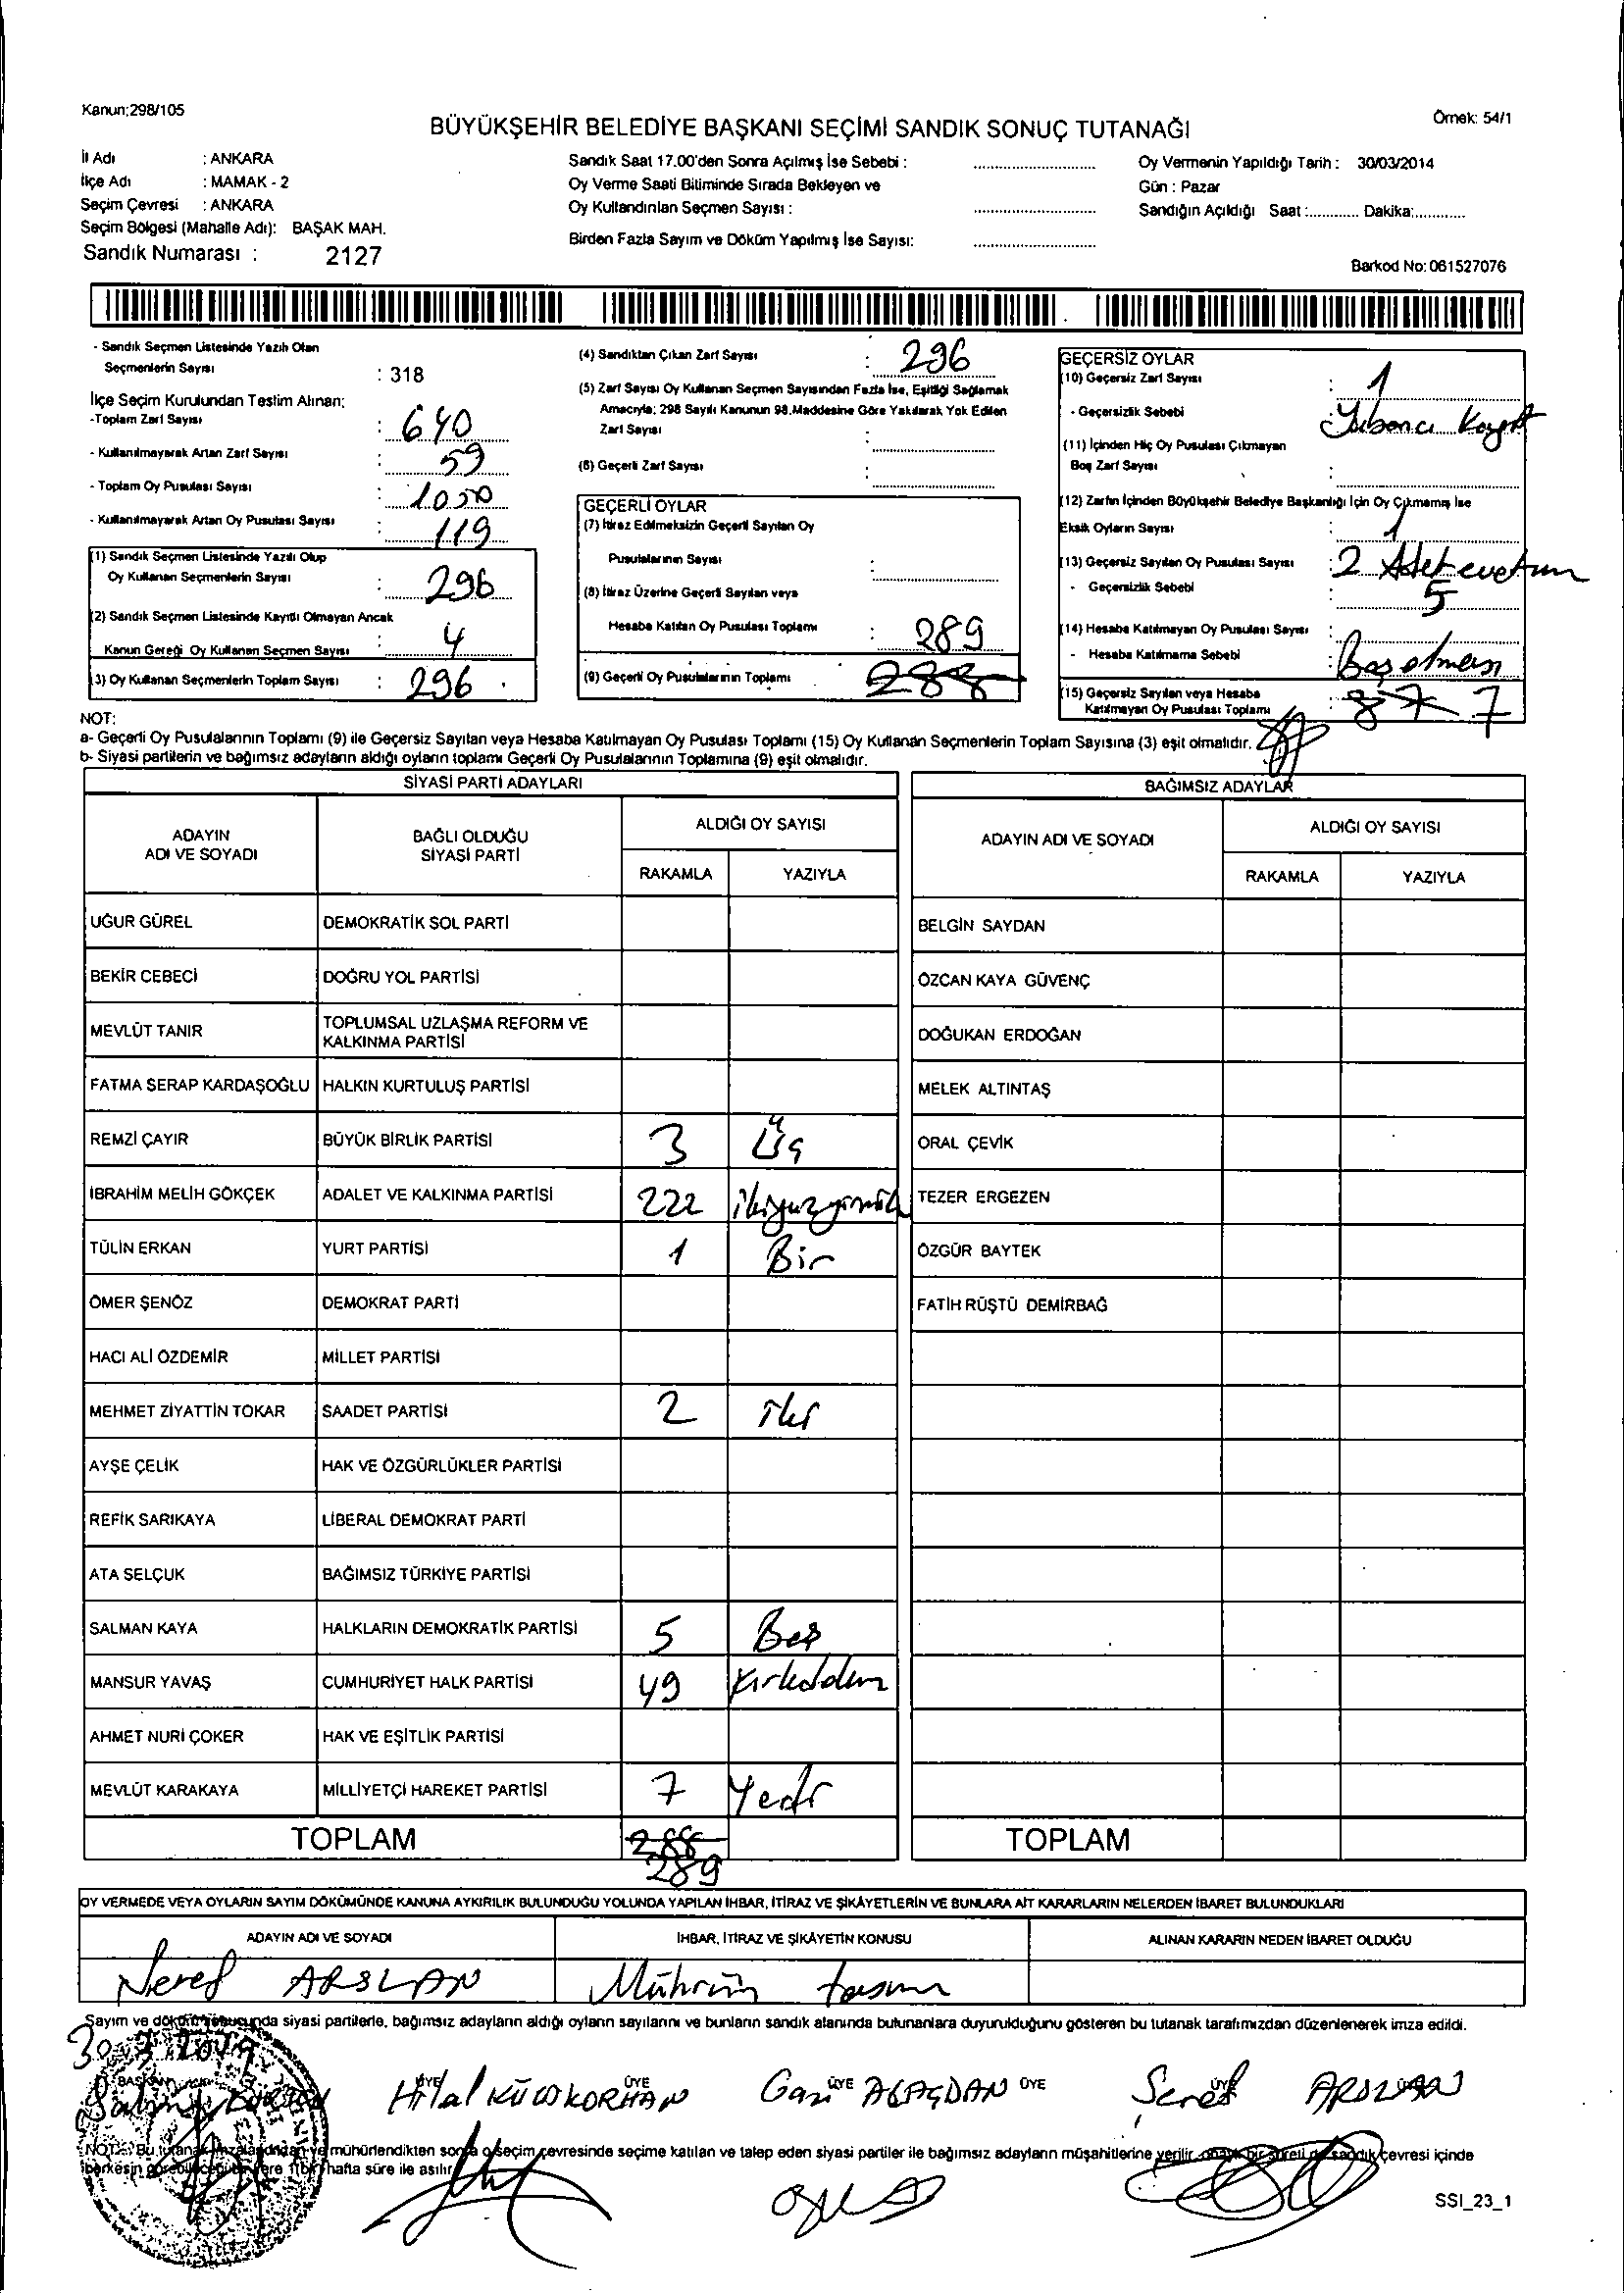 Kanun:298/105
Örnek: 54/1
BÜYÜKŞEHİR BELEDİYE BAŞKANI SEÇİMİ SANDIK SONUÇ TUTANAĞI
İl Adı : ANKARA
İlçe Adı : MAMAK - 2
Seçim Çevresi : ANKARA
Seçim Bölgesi (Mahalle Adı): BAŞAK MAH.
Sandık Numarası : 2127
Sandık Saat 17.00'den Sonra Açılmış İse Sebebi :
Oy Verme Saati Bitiminde Sırada Bekleyen ve
Oy Kullandırılan Seçmen Sayısı :
Birden Fazla Sayım ve Döküm Yapılmış İse Sayısı:
Oy Vermenin Yapıldığı Tarih : 30/03/2014
Gün : Pazar
Sandığın Açıldığı Saat :............ Dakika:............
Barkod No: 061527076
- Sandık Seçmen Listesinde Yazılı Olan
Seçmenlerin Sayısı : 318
İlçe Seçim Kurulundan Teslim Alınan:
-Toplam Zarf Sayısı : 640
- Kullanılmayarak Artan Zarf Sayısı : 59
- Toplam Oy Pusulası Sayısı : 1050
- Kullanılmayarak Artan Oy Pusulası Sayısı : 119
(1) Sandık Seçmen Listesinde Yazılı Olup
Oy Kullanan Seçmenlerin Sayısı : 296
(2) Sandık Seçmen Listesinde Kayıtlı Olmayan Ancak
Kanun Gereği Oy Kullanan Seçmen Sayısı : 4
(3) Oy Kullanan Seçmenlerin Toplam Sayısı : 296
(4) Sandıktan Çıkan Zarf Sayısı : 296
(5) Zarf Sayısı Oy Kullanan Seçmen Sayısından Fazla İse, Eşitliği Sağlamak
Amacıyla; 298 Sayılı Kanunun 98.Maddesine Göre Yakılarak Yok Edilen
Zarf Sayısı :
(6) Geçerli Zarf Sayısı :
GEÇERLİ OYLAR
(7) İtiraz Edilmeksizin Geçerli Sayılan Oy
Pusulalarının Sayısı :
(8) İtiraz Üzerine Geçerli Sayılan veya
Hesaba Katılan Oy Pusulası Toplamı : 289
(9) Geçerli Oy Pusulalarının Toplamı : 288
GEÇERSİZ OYLAR
(10) Geçersiz Zarf Sayısı : 1
- Geçersizlik Sebebi : Yabancı Kayıt
(11) İçinden Hiç Oy Pusulası Çıkmayan
Boş Zarf Sayısı :
(12) Zarfın İçinden Büyükşehir Belediye Başkanlığı İçin Oy Çıkmamış İse
Eksik Oyların Sayısı : 1
(13) Geçersiz Sayılan Oy Pusulası Sayısı : 2 Adet evet
- Geçersizlik Sebebi : 5
(14) Hesaba Katılmayan Oy Pusulası Sayısı :
- Hesaba Katılmama Sebebi : Boş olması
(15) Geçersiz Sayılan veya Hesaba
Katılmayan Oy Pusulası Toplamı : 87 7
NOT:
a- Geçerli Oy Pusulalarının Toplamı (9) ile Geçersiz Sayılan veya Hesaba Katılmayan Oy Pusulası Toplamı (15) Oy Kullanan Seçmenlerin Toplam Sayısına (3) eşit olmalıdır.
b- Siyasi partilerin ve bağımsız adayların aldığı oyların toplamı Geçerli Oy Pusulalarının Toplamına (9) eşit olmalıdır.
SİYASİ PARTİ ADAYLARI
ADAYIN ADI VE SOYADI
BAĞLI OLDUĞU SİYASİ PARTİ
ALDIĞI OY SAYISI
RAKAMLA YAZIYLA
UĞUR GÜREL DEMOKRATİK SOL PARTİ
BEKİR CEBECİ DOĞRU YOL PARTİSİ
MEVLÜT TANIR TOPLUMSAL UZLAŞMA REFORM VE KALKINMA PARTİSİ
FATMA SERAP KARDAŞOĞLU HALKIN KURTULUŞ PARTİSİ
REMZİ ÇAYIR BÜYÜK BİRLİK PARTİSİ 3 Üç
İBRAHİM MELİH GÖKÇEK ADALET VE KALKINMA PARTİSİ 222 ikiyüzyirmiik
TÜLİN ERKAN YURT PARTİSİ 1 Bir
ÖMER ŞENÖZ DEMOKRAT PARTİ
HACI ALİ ÖZDEMİR MİLLET PARTİSİ
MEHMET ZİYATTİN TOKAR SAADET PARTİSİ 2 İki
AYŞE ÇELİK HAK VE ÖZGÜRLÜKLER PARTİSİ
REFİK SARIKAYA LİBERAL DEMOKRAT PARTİ
ATA SELÇUK BAĞIMSIZ TÜRKİYE PARTİSİ
SALMAN KAYA HALKLARIN DEMOKRATİK PARTİSİ 5 Beş
MANSUR YAVAŞ CUMHURİYET HALK PARTİSİ 49 Kırkdokuz
AHMET NURİ ÇOKER HAK VE EŞİTLİK PARTİSİ
MEVLÜT KARAKAYA MİLLİYETÇİ HAREKET PARTİSİ 7 Yedi
TOPLAM 288 289
BAĞIMSIZ ADAYLAR
ADAYIN ADI VE SOYADI
ALDIĞI OY SAYISI
RAKAMLA YAZIYLA
BELGİN SAYDAN
ÖZCAN KAYA GÜVENÇ
DOĞUKAN ERDOĞAN
MELEK ALTINTAŞ
ORAL ÇEVİK
TEZER ERGEZEN
ÖZGÜR BAYTEK
FATİH RÜŞTÜ DEMİRBAĞ
TOPLAM
OY VERMEDE VEYA OYLARIN SAYIM DÖKÜMÜNDE KANUNA AYKIRILIK BULUNDUĞU YOLUNDA YAPILAN İHBAR, İTİRAZ VE ŞİKÂYETLERİN VE BUNLARA AİT KARARLARIN NELERDEN İBARET BULUNDUKLARI
ADAYIN ADI VE SOYADI İHBAR, İTİRAZ VE ŞİKÂYETİN KONUSU ALINAN KARARIN NEDEN İBARET OLDUĞU
Şeref ARSLAN Mührün taşması
Sayım ve döküm sonucunda siyasi partilerle, bağımsız adayların aldığı oyların sayılarını ve bunların sandık alanında bulunanlara duyurulduğunu gösteren bu tutanak tarafımızdan düzenlenerek imza edildi.
BAŞKAN ÜYE ÜYE ÜYE ÜYE ÜYE
Hilal Gazi Şeref ARSLAN
NOT: Bu tutanak imzalandıktan ve mühürlendikten sonra o seçim çevresinde seçime katılan ve talep eden siyasi partiler ile bağımsız adayların müşahitlerine verilir, onaylı bir sureti de sandık çevresi içinde
herkesin görebileceği bir yere 1(bir) hafta süre ile asılır.
SSI_23_1